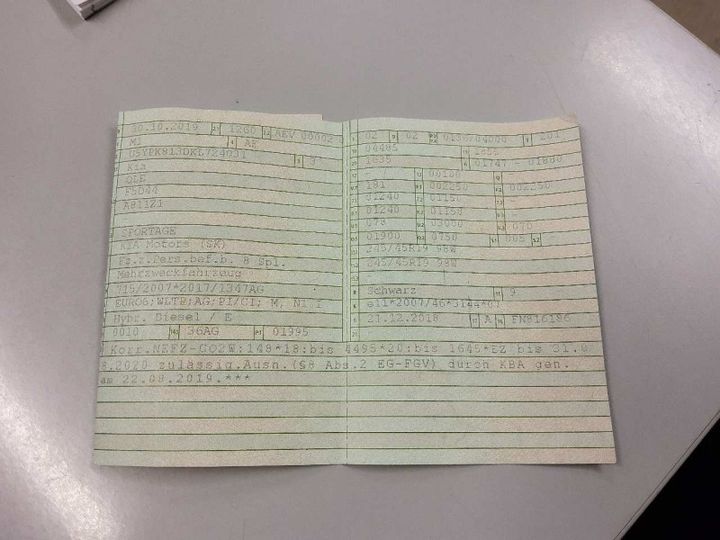 30.10.2019 1260 AEV 00002
M1 AE
3
Kia
QLE
F5D44
A811Z1
SPORTAGE
KIA Motors (SK)
Fz.z.Pers.bef.b. 8 Spl.
Mehrzweckfahrzeug
715/2007*2017/1347AG
EURO6;WLTP;AG;PI/CI; M, N1 I
Hybr. Diesel / E
0010 36AG 01995
02 02 0136/04000 201
04485 1855
1635 01747 - 01800
- / 00100 -
181 002250 002250
01240 01150
01240 01150
078 03000 070
01900 0750 005
245/45R19 98W
245/45R19 98W
Schwarz 9
e11*2007/46*3144*07
21.12.2018 A FN816186
Korr.NEFZ-CO2W:148*18:bis 4495*20:bis 1645*EZ bis 31.0
8.2020 zulässig.Ausn.(§8 Abs.2 EG-FGV) durch KBA gen.
am 22.08.2019.***